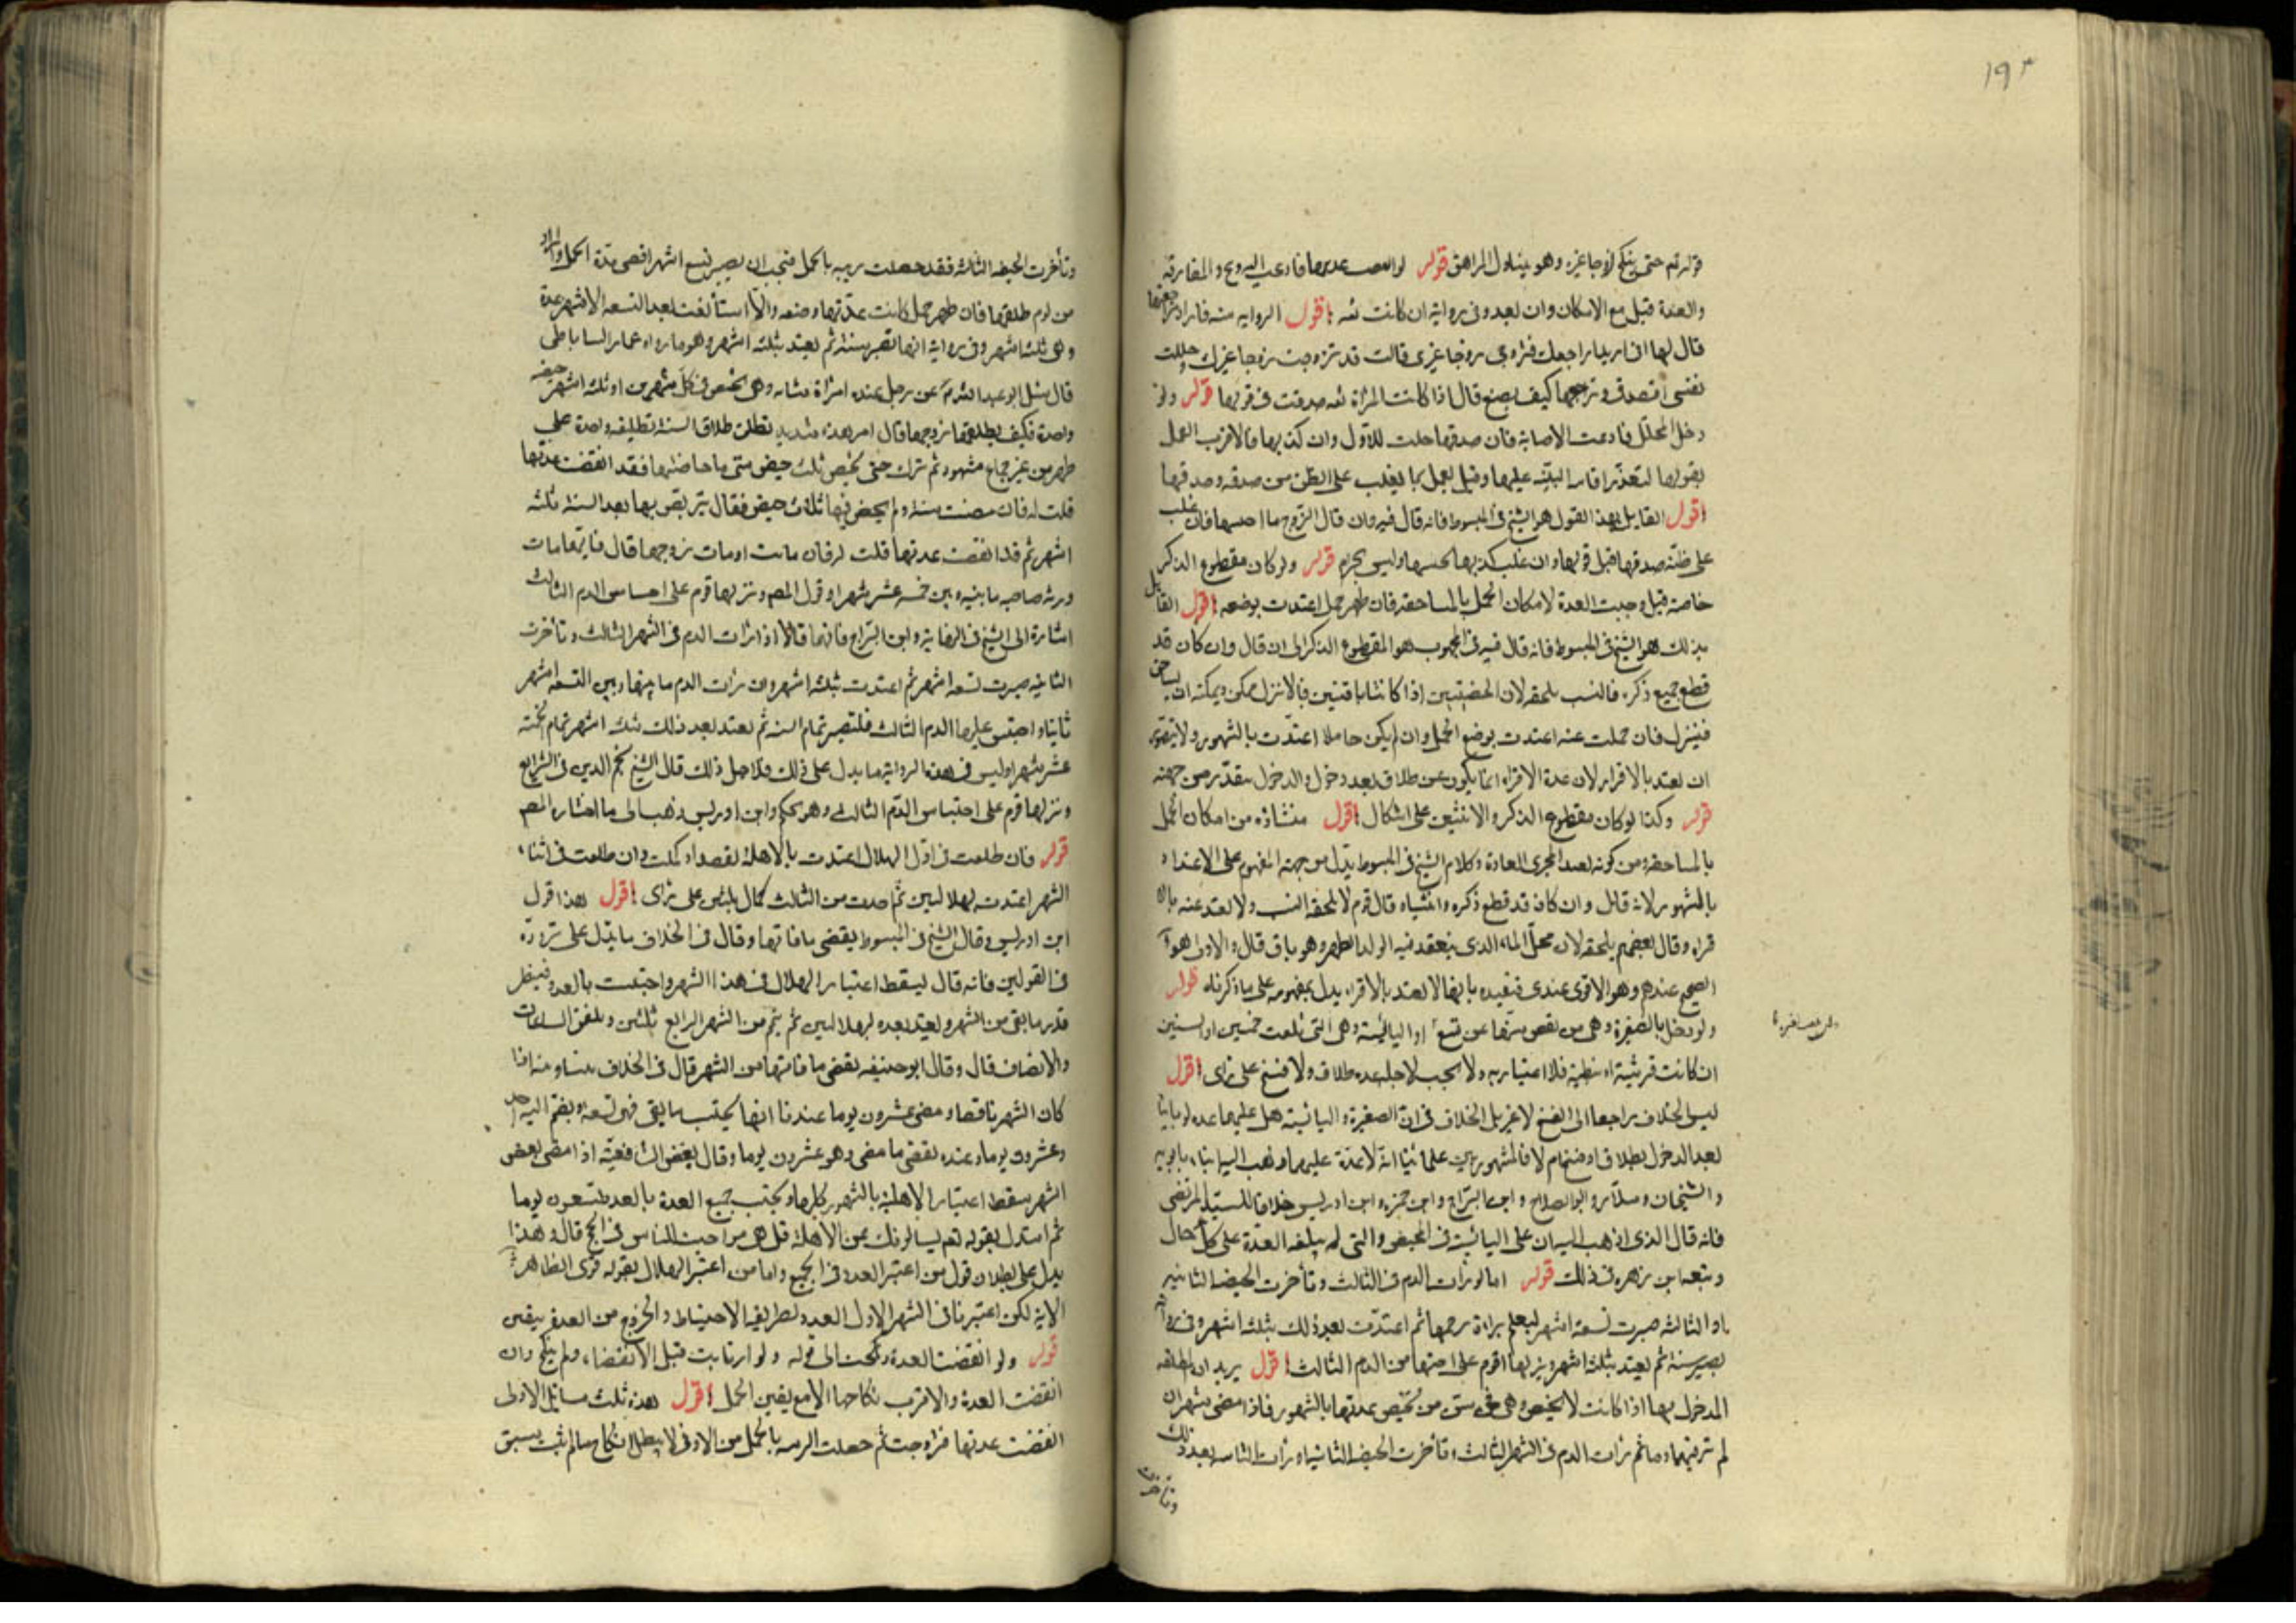 ١٩٣
قوله تم حتى ينكح زوجا غيره وهو يتناول المراهق قوله لو انقضت عدتها فادعت التزويج والمفارقة
والعدة قبل مع الامكان وان بعد وفي رواية ان كانت ثقه اقول الرواية
قال لها اني اريد مراجعتك فتزوجي زوجا غيري فقالت قد تزوجت زوجا غيرك وحللت
نفسي اتصدق ويراجعها كيف يصنع قال اذا كانت المرأة ثقه صدقت في قولها قوله ولو
دخل المحلل فادعت الاصابة فان صدقها حلت للاول وان كذبها فالاقرب العمل
بقولها لتعذر اقامة البينة عليها وقيل يعمل بما يغلب على الظن من صدقه وصدقها
اقول القايل بهذا القول هو الشيخ في المبسوط فانه قال فيه وان قال الزوج ما اصبتها فان غلب
على ظنه صدقها قبل قولها وان غلب كذبها تجنبها وليس بحرام قوله ولو كان مقطوع الذكر
خاصة قيل وجبت العدة لامكان الحمل بالمساحقة فان ظهر حمل اعتدت بوضعه اقول القايل
بذلك هو الشيخ في المبسوط فانه قال فيه في المجبوب هو المقطوع الذكر الى ان قال وان كان قد
قطع جميع ذكره فالنسب يلحقه لان الخصيتين اذا كانتا باقيتين فالانزال ممكن ويمكنه ان يساحق
فينزل فان حملت عنه اعتدت بوضع الحمل وان لم يكن حاملا اعتدت بالشهور ولا يتصور
ان تعتد بالاقراء لان عدة الاقراء انما يكون عن طلاق بعد دخول والدخول متعذر من جهته
قوله وكذا لو كان مقطوع الذكر والانثيين على اشكال اقول منشاؤه من امكان الحمل
بالمساحقة ومن كونه بعيدا لمجرى العادة وكلام الشيخ في المبسوط يدل من جهة المفهوم على الاعتداد
بالشهور لانه قال وان كان قد قطع ذكره وانثياه قال قوم لا يلحقه النسب ولا تعتد عنه بالا
قراء وقال بعضهم يلحقه لان محل الماء الذي ينعقد منه الولد الظهر وهو باق قال والاول هو
الصحيح عندهم وهو الاقوى عندي فتقييده بانها لا تعتد بالاقراء يدل بمفهومه على ما ذكرناه قوله
ولو دخل بالصغيرة وهي من نقص سنها عن تسع او اليائسة وهي التي بلغت خمسين او ستين
ان كانت قرشية او نبطية فلا اعتبار به ولا يجب لاجله عدة طلاق ولا فسخ على رأى اقول
ليس الخلاف راجعا الى الفسخ لا غير بل الخلاف في ان الصغيرة واليائسة هل عليهما عدة لو بانتا
بعد الدخول بطلاق او فسخ ام لا فالمشهور بين علمائنا انه لا عدة عليهما وذهب اليه ابنا بابويه
والشيخان وسلار وابو الصلاح وابن البراج وابن حمزه وابن ادريس خلافا للسيد المرتضى
فانه قال الذي اذهب اليه ان على اليائسة في المحيض والتي لم يبلغه العدة على كل حال
وتبعه ابن زهره في ذلك قوله اما لو رأت الدم في الثالث وتأخرت الحيضة الثانيه
او الثالثه صبرت تسعة اشهر ليعلم براءة رحمها ثم اعتدت بعد ذلك بثلثه اشهر وفي رواية
تصبر سنة ثم تعتد بثلثة اشهر ونزلها قوم على احتباس الدم الثالث اقول يريد ان المطلقه
المدخول بها اذا كانت لا تحيض وهي في سن من تحيض عدتها بالشهور فاذا مضى شهران
لم تر فيهما دما ثم رأت الدم في الشهر الثالث وتأخرت الحيضه الثانية او رأت الثانية بعد ذلك
وتأخرت
وتأخرت الحيضه الثالثة فقد حصلت ريبه بالحمل فتجب ان تصبر تسع اشهر اقصى مدة الحمل
من يوم طلقها فان ظهر حمل كانت عدتها وضعه والا استأنفت بعد التسعه الاشهر عدة
وهي ثلثة اشهر وفي رواية انها تصبر سنة ثم تعتد بثلثه اشهر وهو ما رواه عمار الساباطي
قال سئل ابو عبد الله عن رجل عنده امرأة شابه وهي تحيض في كل شهرين او ثلثه اشهر حيضه
واحدة فكيف يطلقها زوجها قال امر هذه شديد تطلق طلاق السنة تطليقه واحدة على
طهر من غير جماع بشهود ثم تترك حتى تحيض ثلث حيض متى ما حاضتها فقد انقضت عدتها
قلت له فان مضت سنة ولم تحض فيها ثلاث حيض فقال يتربص بها بعد السنة ثلثه
اشهر ثم قد انقضت عدتها قلت له فان ماتت او مات زوجها قال فايهما مات
ورثه صاحبه ما بينه وبين خمسة عشر شهرا وقول المصـ ونزلها قوم على احتباس الدم الثالث
اشارة الى الشيخ في النهاية وابن البراج فانهما قالا اذا رأت الدم في الشهر الثالث وتأخرت
الثانيه صبرت تسعه اشهر ثم اعتدت بثلثه اشهر وان رأت الدم ما بينها وبين التسعه اشهر
ثانيا واحتبس عليها الدم الثالث فلتصبر تمام السنة ثم تعتد بعد ذلك بثلثه اشهر تمام الخمسه
عشر شهرا وليس في هذه الرواية ما يدل على ذلك ولاجل ذلك قال الشيخ نجم الدين في الشرايع
ونزلها قوم على احتباس الدم الثالث وهو تحكم وابن ادريس ذهب الى ما اختاره المصـ
قوله فان طلقت في اول الهلال اعتدت بالاهلة تقصدا وكملت وان طلقت في اثناء
الشهر اعتدت بهلالين ثم اخذت من الثالث كمال ثلثين على رأى اقول هذا قول
ابن ادريس وقال الشيخ في المبسوط يقضى ما فاتها وقال في الخلاف ما يدل على تردده
في القولين فانه قال يسقط اعتبار الهلال في هذا الشهر واحتسبت بالعدد فينظر
قدر ما بقى من الشهر وتعتد بعده بهلالين ثم يتم من الشهر الرابع ثلثين ويلفق الساعات
والانصاف قال وقال ابو حنيفه تقضى ما فاتها من الشهر قال في الخلاف بيننا وبينه اذا
كان الشهر ناقصا ومضى عشرون يوما عندنا انها يحتسب ما بقى فهو تسعة ويضم اليه احد
وعشرون يوما وعنده تقضى ما مضى وهو عشرون يوما وقال بعض الشافعية اذا مضى بعض
الشهر سقط اعتبار الاهلة بالشهور كلها ويحتسب جميع العدة بالعدد تسعون يوما
ثم استدل بقوله تعـ يسالونك عن الاهلة قل هي مواقيت للناس والحج قال وهذا
يدل على بطلان قول من اعتبر العدد في الجميع واما من اعتبر الهلال بقوله قوى لظاهر
الاية لكن اعتبرنا في الشهر الاول العدد لطريقة الاحتياط والخروج من العدة بيقين
قوله ولو انقضت العدة ونكحت الى قوله ولو ارتابت قبل الانقضاء ولم ينكح وان
انقضت العدة والاقرب نكاحها الا مع يقين الحمل اقول هذه ثلث مسائل الاولى
انقضت عدتها فتزوجت ثم حصلت الريبه بالحمل من الاول لا يبطل النكاح ما لم يثبت سبق